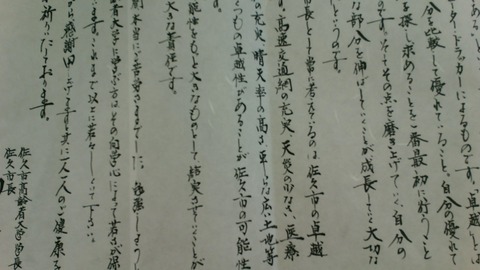 ーター・ドラッカーによるものです。「卓越とは
分と比較して優れていること、自分の優れて
を探し求めることを一番最初に行うこと
す。そしてその点を磨き上げていく、自分の
な部分を伸ばしていくことが成長として大切な
というのです。
市長として常に考えているのは、佐久市の卓越
す。高速交通網の充実、天災の少なさ、医療
の充実、晴天率の高さ、平らな広い土地等
くつもの卓越性があることが佐久市の可能性
能性をもっと大きなものとして結実させていくことが
大きな責任です。
本当にご苦労さまでした。
者大学に学ぶ方はその向学心によって若さが保
います。これまで以上に若々しくいて下さい。
がら感謝申し上げますと共に一人一人のご健康を
お祈りいたしております。
佐久市高齢者大学学長
佐久市長